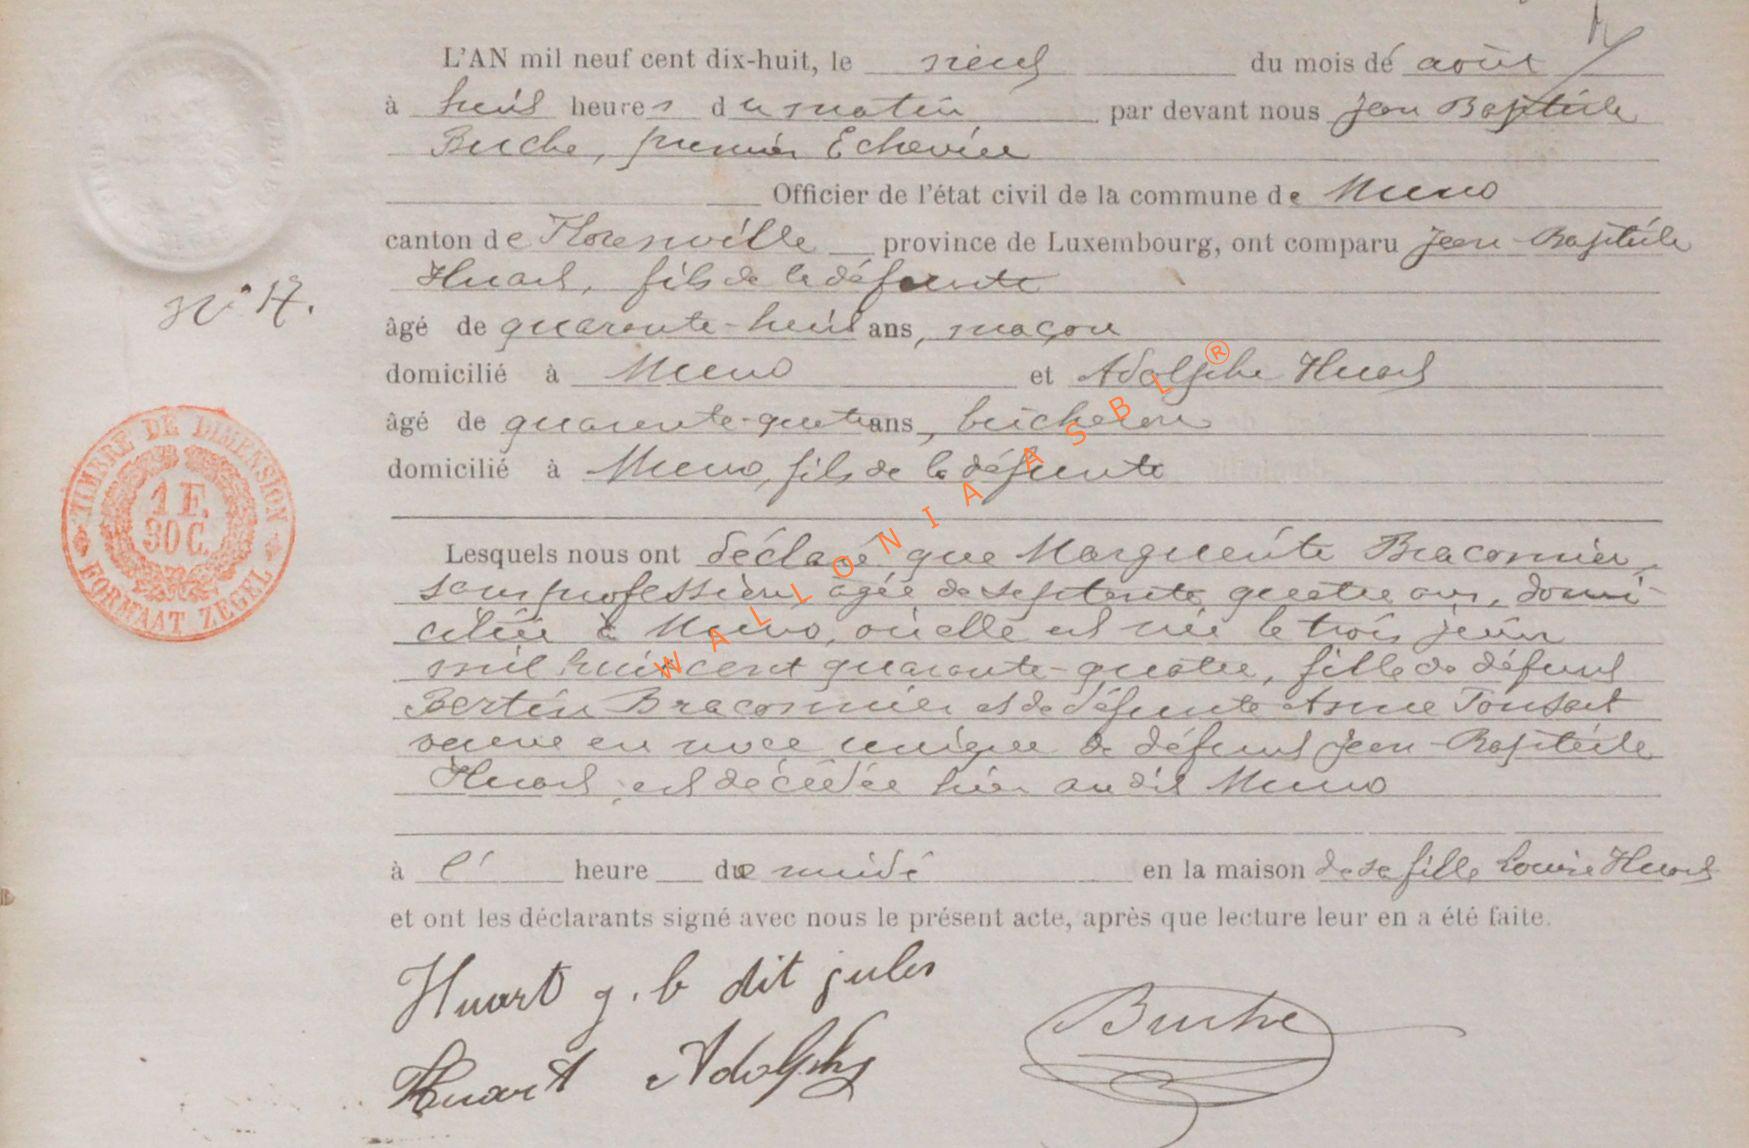 L'AN mil neuf cent dix-huit, le neuf du mois de août
à huit heures du matin par devant nous Jean Baptiste
Buche, premier Echevin
Officier de l'état civil de la commune de Muno
canton de Florenville province de Luxembourg, ont comparu Jean-Baptiste
Huart, fils de la défunte
N° 17.
âgé de quarante-huit ans, maçon
domicilié à Muno et Adolphe Huart
âgé de quarante-quatre ans, bûcheron
domicilié à Muno, fils de la défunte
TIMBRE DE DIMENSION
1 F.
30 C.
FORMAAT ZEGEL
Lesquels nous ont déclaré que Marguerite Braconnier,
sans profession, âgée de septante quatre ans, domi-
ciliée à Muno, où elle est née le trois juin
mil huit cent quarante-quatre, fille de défunt
Bertin Braconnier et de défunte Anne Tousset
veuve en noce unique de défunt Jean-Baptiste
Huart, est décédée hier au dit Muno
à l' heure de midi en la maison de sa fille Louise Huart
et ont les déclarants signé avec nous le présent acte, après que lecture leur en a été faite.
Huart j. b dit jules
Buche
Huart Adolphe
WALLONIA ASBL ®